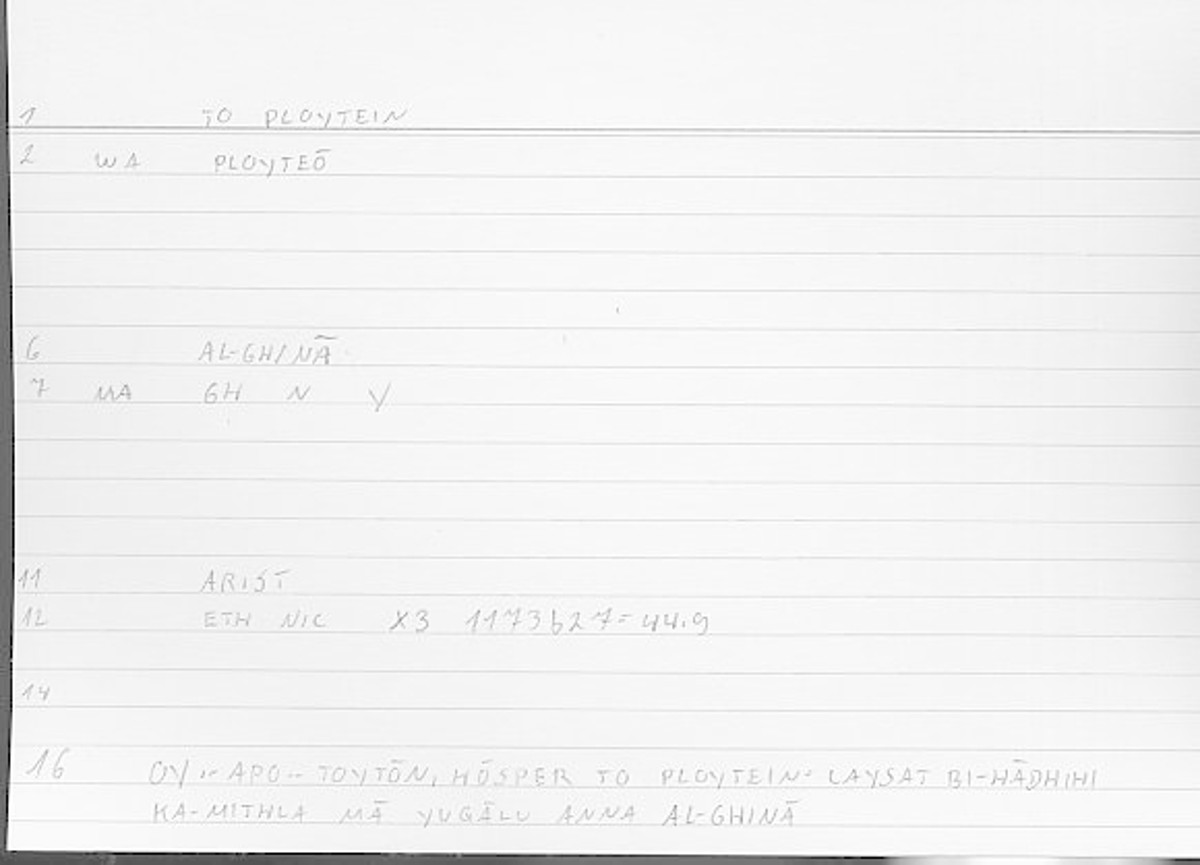 1 TO PLOYTEIN
2 WA PLOYTEŌ
6 AL-GHINĀ
7 MA GH N Y
11 ARIST
12 ETH NIC X3 1173b27=44.9
14
16 OY -- APO -- TOYTŌN, HŌSPER TO PLOYTEIN = LAYSAT BI-HĀDHIHI
KA-MITHLA MĀ YUGĀLU ANNA AL-GHINĀ